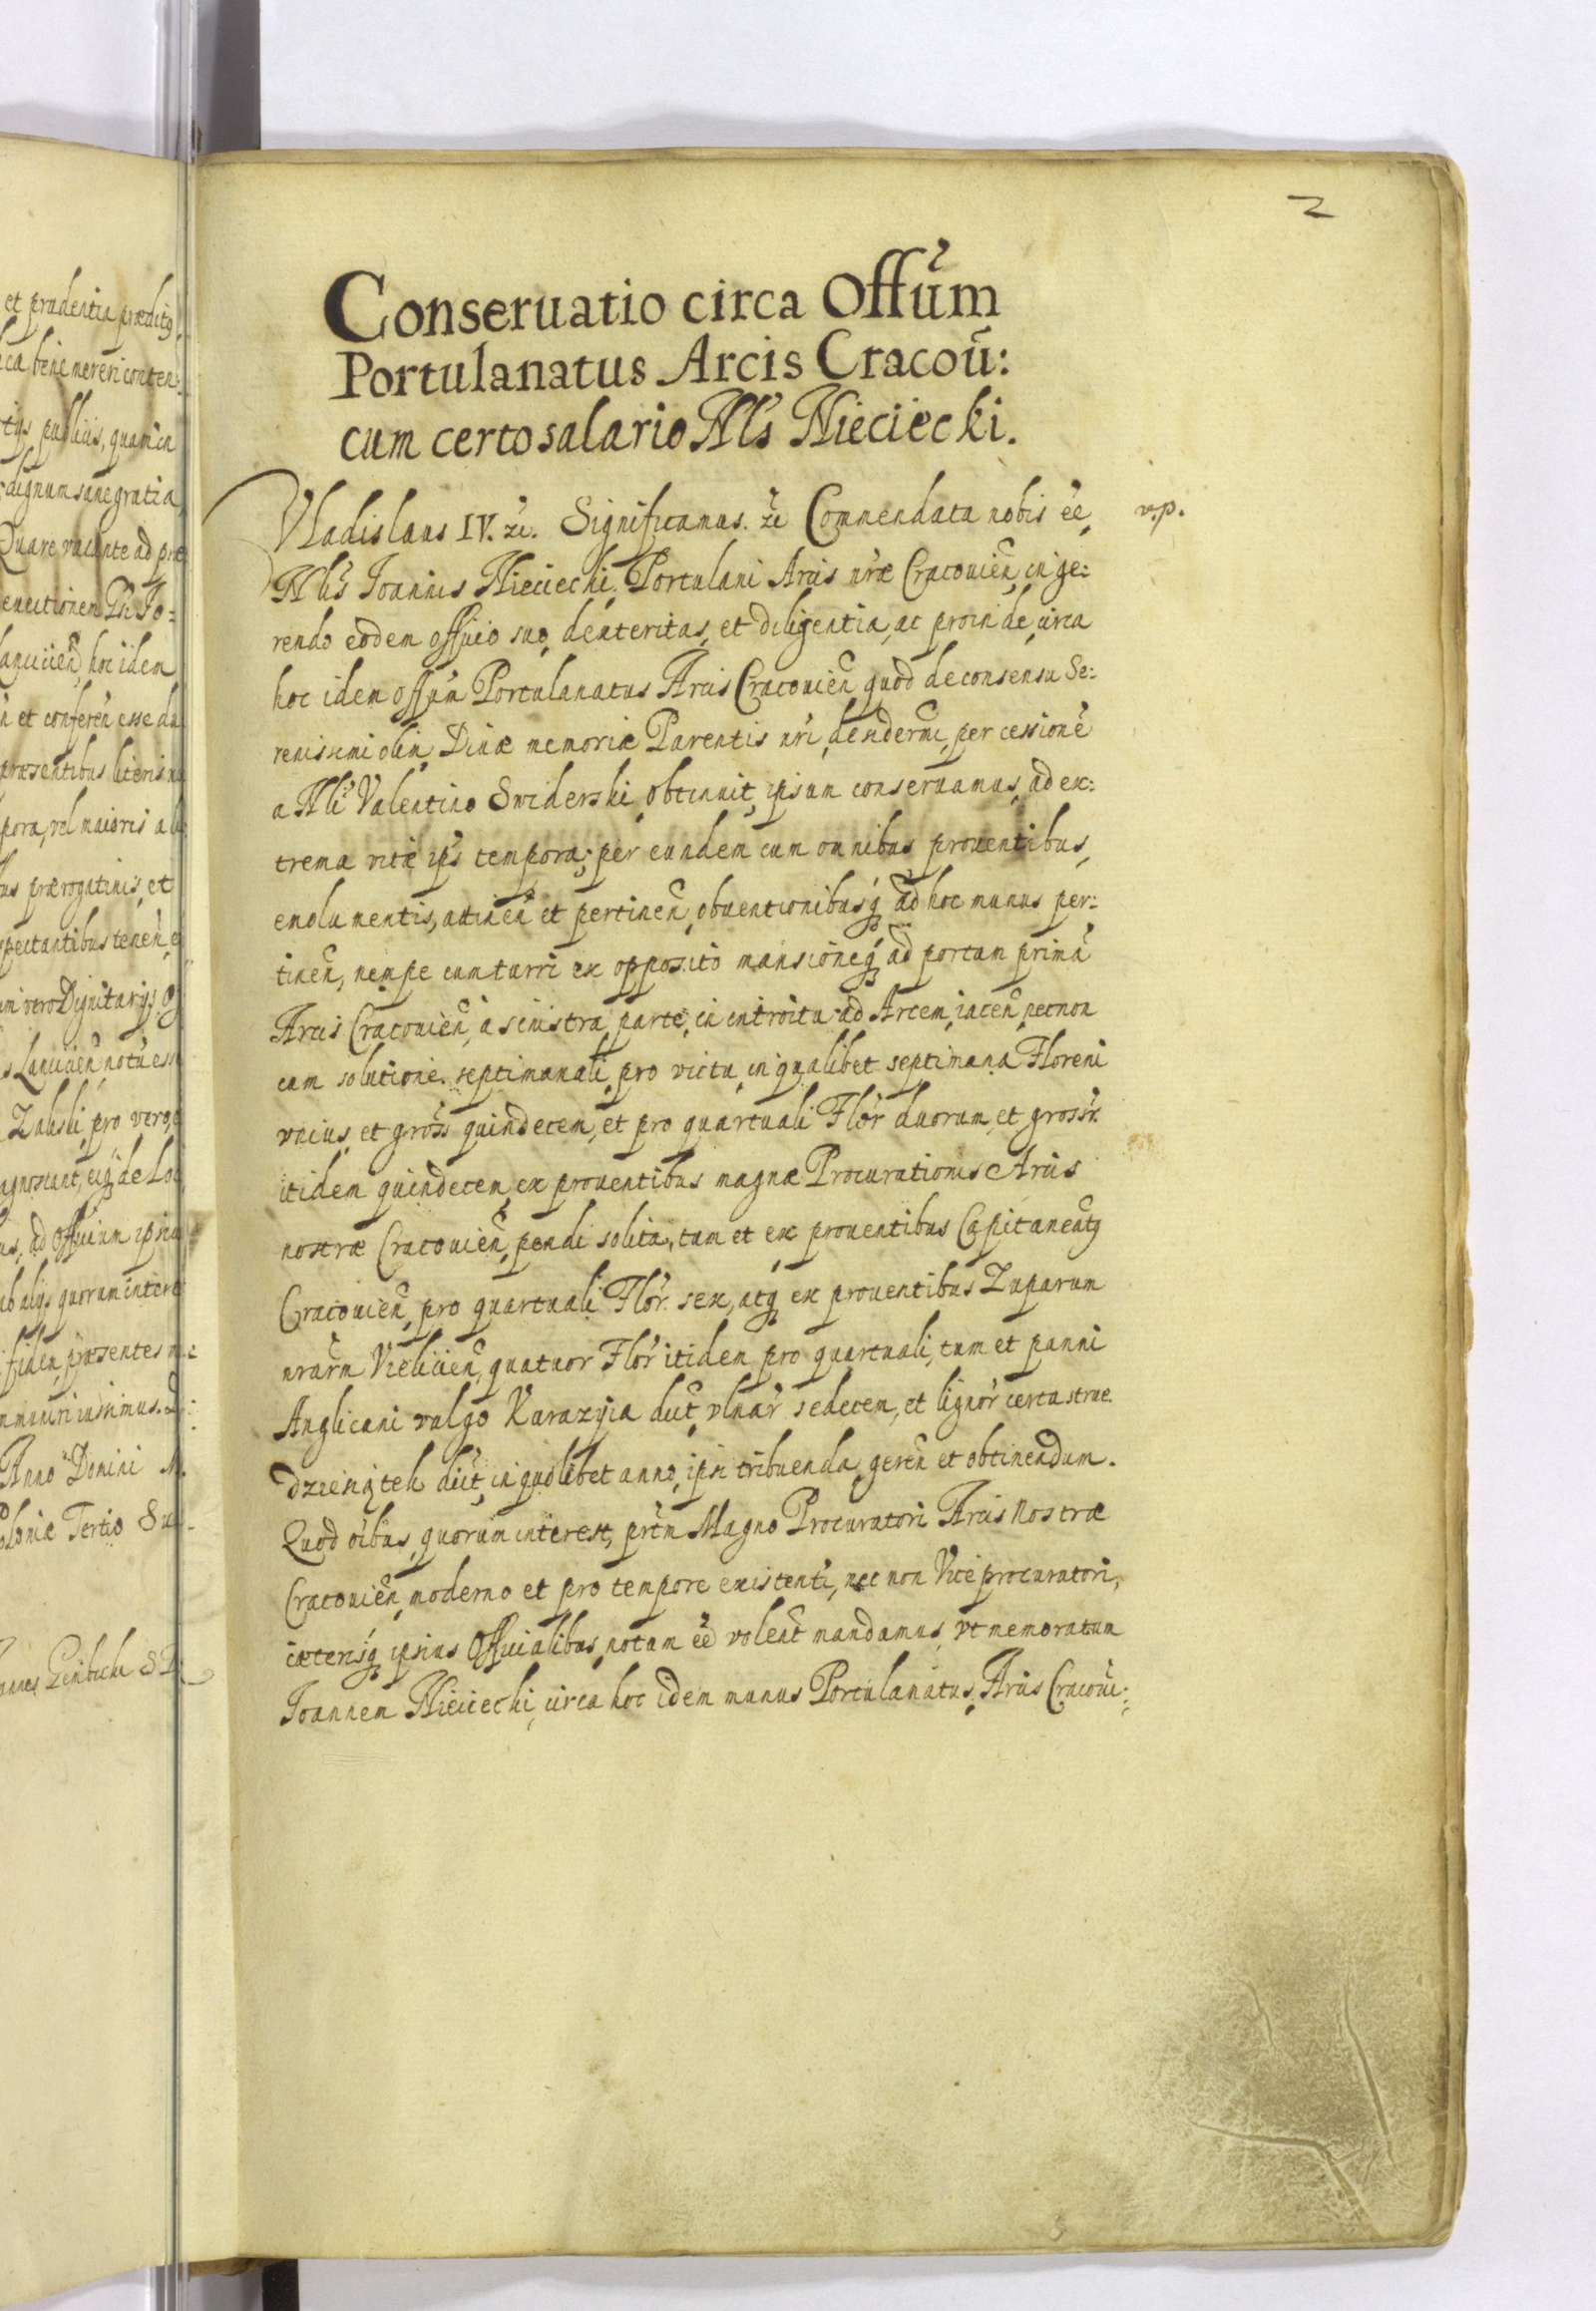 et prudentia præditq
ca bene mereri conten:
tijs publicis, quam in
dignum sane gratia
Quare vacante ad præ
euectionem Jo=
lancicieñ, hoc idem
ñ et conferen̄ esse du
præsentibus literis n
pora, vel maioris a
us prærogatiuis, et
spectantibus teneñ e
um vero Dignitarijs O
s Lanciciеñ notū esse
Zaluski pro vero
agnoscant, eiq de Lo
us, ad officium ipsiu
ab alijs quorum intere
fidem præsentes m
mmuniri iussimus. D
Anno Domini M.
oloniæ Tertio Su
oannes Gembicki S R
2
Conseruatio circa Offũm
Portulanatus Arcis Cracoũ:
cum certo salario Nlis Nieciecki.
Vladislaus IV. &c. Significamus. &c Commendata nobis ẽe v.p.
Nlis Joannis Nieciecki, Portulani Arcis nræ Cracouieñ, in ge:
rendo eodem officio suo, dexteritas, et diligentia, ac proinde, circa
hoc idem offũm Portulanatus Arcis Cracouieñ quod de consensu Se:
renissimi olim Diuæ memoriæ Parentis nri, desiderm̃, per cessionẽ
a Nli Valentino Swiderski, obtinuit, ipsum conseruamus, ad ex:
trema vitæ ips tempora; per eundem cum omnibus prouentibus,
emolumentis, attineñ et pertineñ, obuentionibusq, ad hoc munus per:
tineñ, nempe cum turri ex opposito mansioneq, ad portam primã
Arcis Cracouieñ, à sinistra parte, in introitu ad Arcem, iaceñ, necnon
cum solutione septimanali, pro victu, in qualibet septimana Floreni
vnius, et gross quindecem, et pro quartuali Flor duorum, et grossr.
itidem quindecem, ex prouentibus magnæ Procurationis Arcis
nostræ Cracouieñ, pendi solita, tum et ex prouentibus Capitaneatq
Cracouieñ, pro quartuali Flor. sex, atq, ex prouentibus Zuparum
nrarm Vieliciеñ, quatuor Flor itidem pro quartuali, tum et panni
Anglicani vulgo Karazyia dict, vlnar sedecem, et lignor certa strue
dziesiątek dict, in quolibet anno, ipsi tribuenda, gereñ et obtinendum.
Quod oibus, quorum interest, prem Magno Procuratori Arcis Nostræ
Cracouieñ, moderno et pro tempore existenti, nec non Viceprocuratori,
cæterisq, ipsius Officialibus, notum ẽe voleñt mandamus, vt memoratum
Joannem Nieciecki, circa hoc idem munus Portulanatus, Arcis Cracoui: